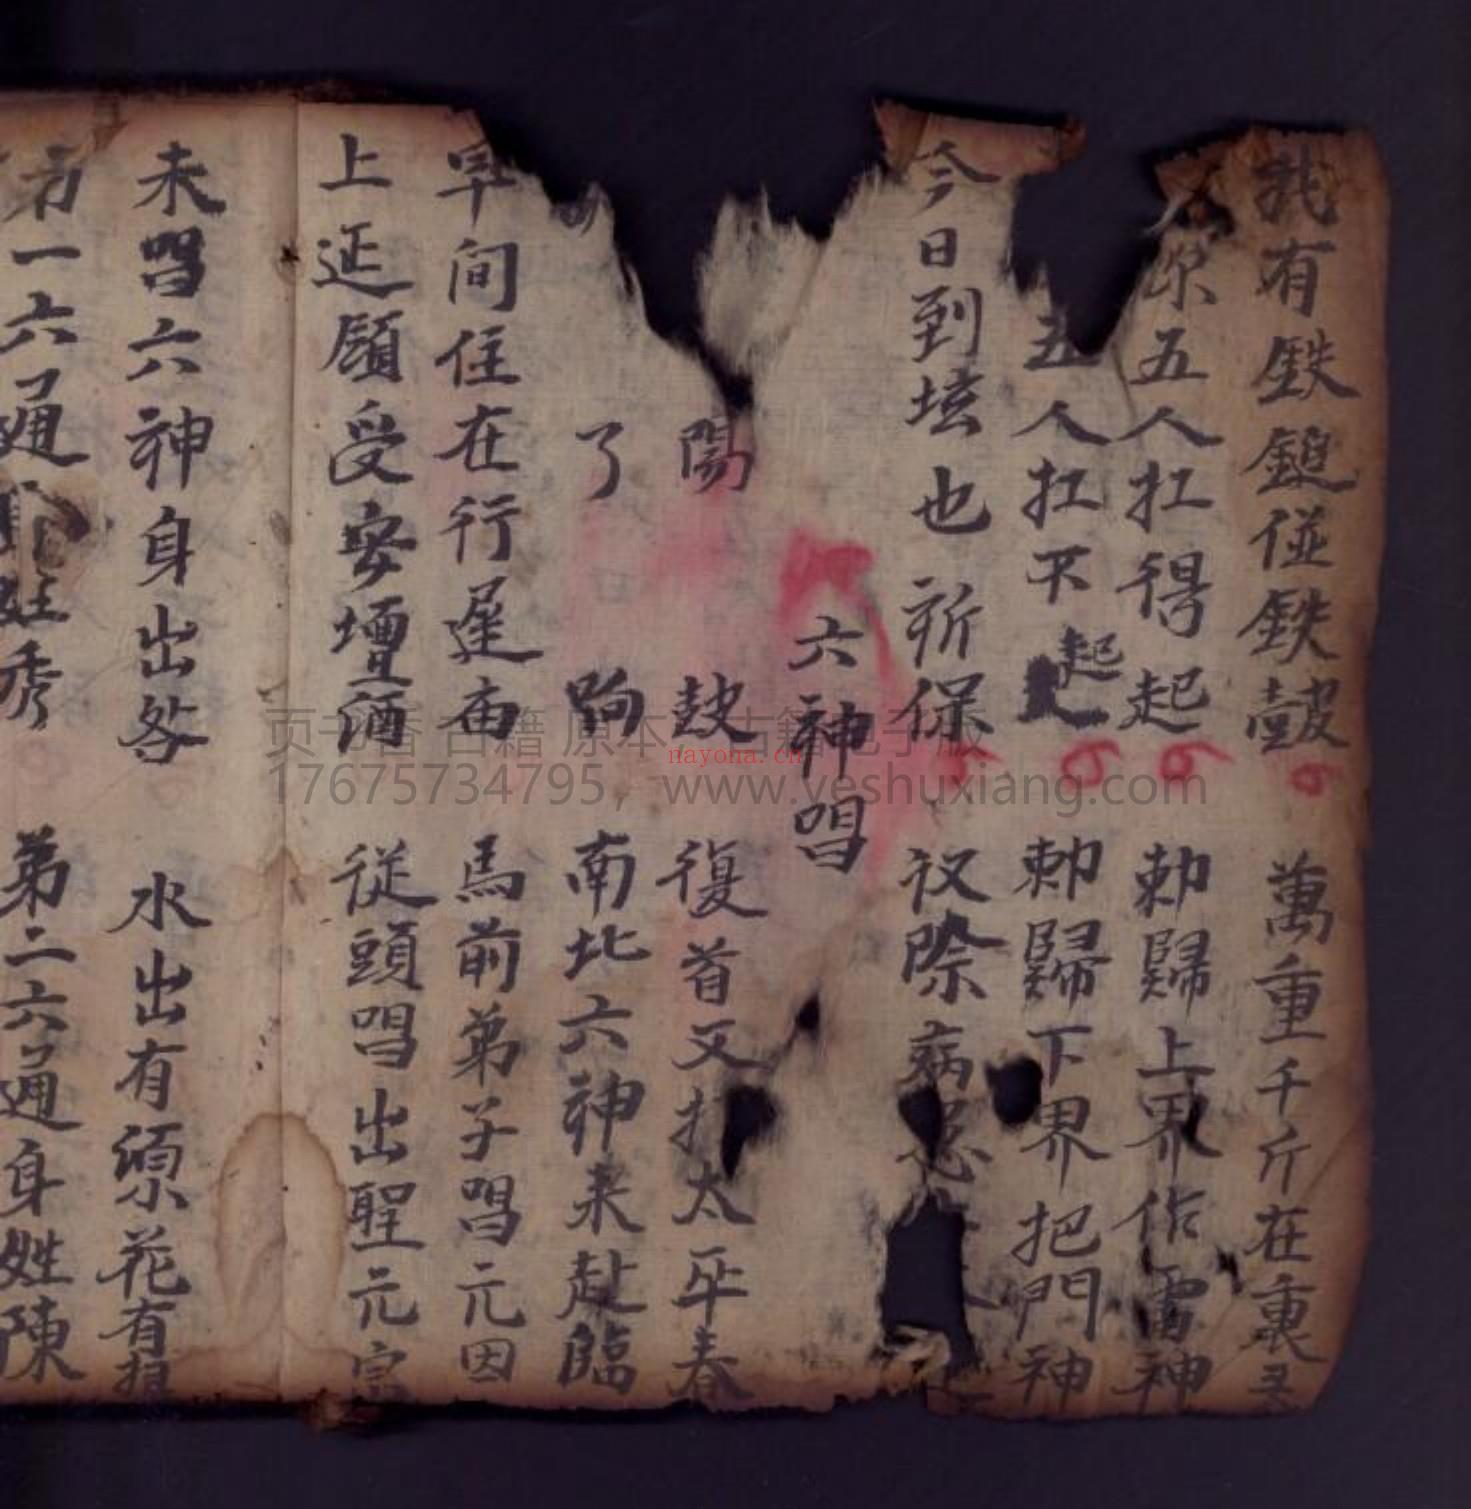 我有鉄鎚碰鉄鼓 萬重千斤在裏
尔五人扛得起 勅歸上界作雷神
五人扛不起 勅歸下界把門神
今日到壇也祈保  除病
六神唱
陽 鼓 復首又打太平春
了 响 南北六神来赴臨
早間住在行遅庙 馬前弟子唱元因
上延領受安壇酒 從頭唱出聖元
未唱六神身出咎 水出有源花有根
一六通 姓秀 弟二六通身姓陳
页书香古籍 原本 古籍电子版
17675734795，www.yeshuxiang.com
nayona.cn